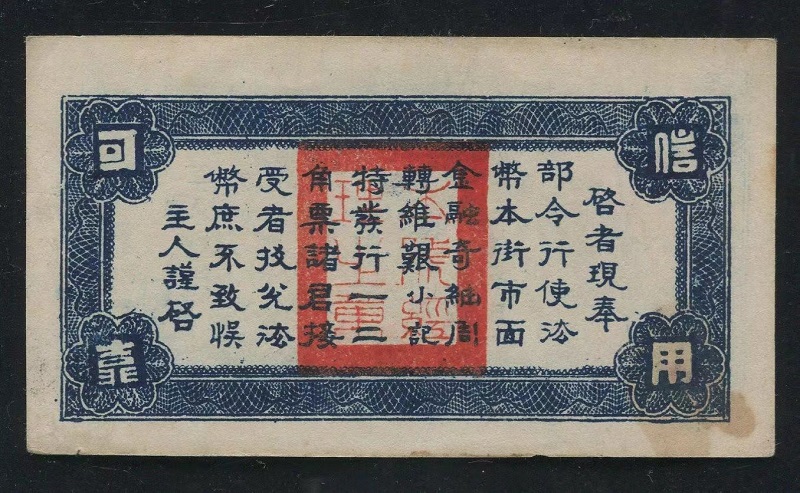 信用可靠
啓者現奉
部令行使法
幣本街市面
金融奇紬周
轉維艱小記
特發行一二
角票諸君接
受者技兌法
幣庶不致悞
主人謹啓